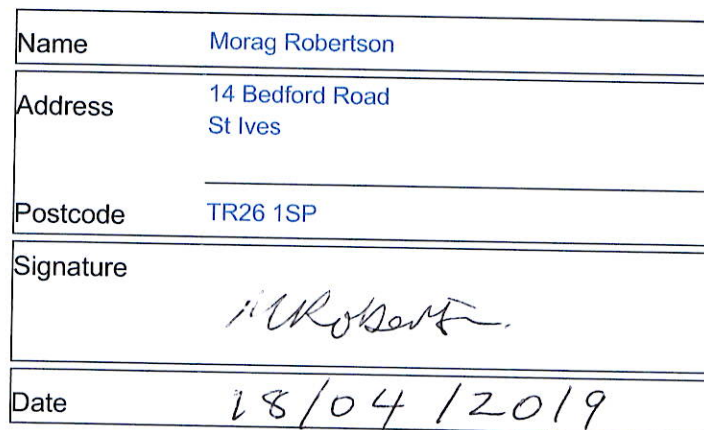 Name Morag Robertson
Address 14 Bedford Road
St Ives
Postcode TR26 1SP
Signature
MRobertson
Date 18/04/2019